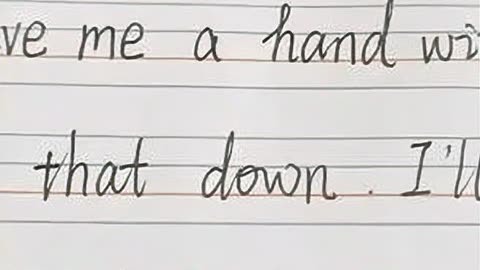 ve me a hand wi
that down. I'll